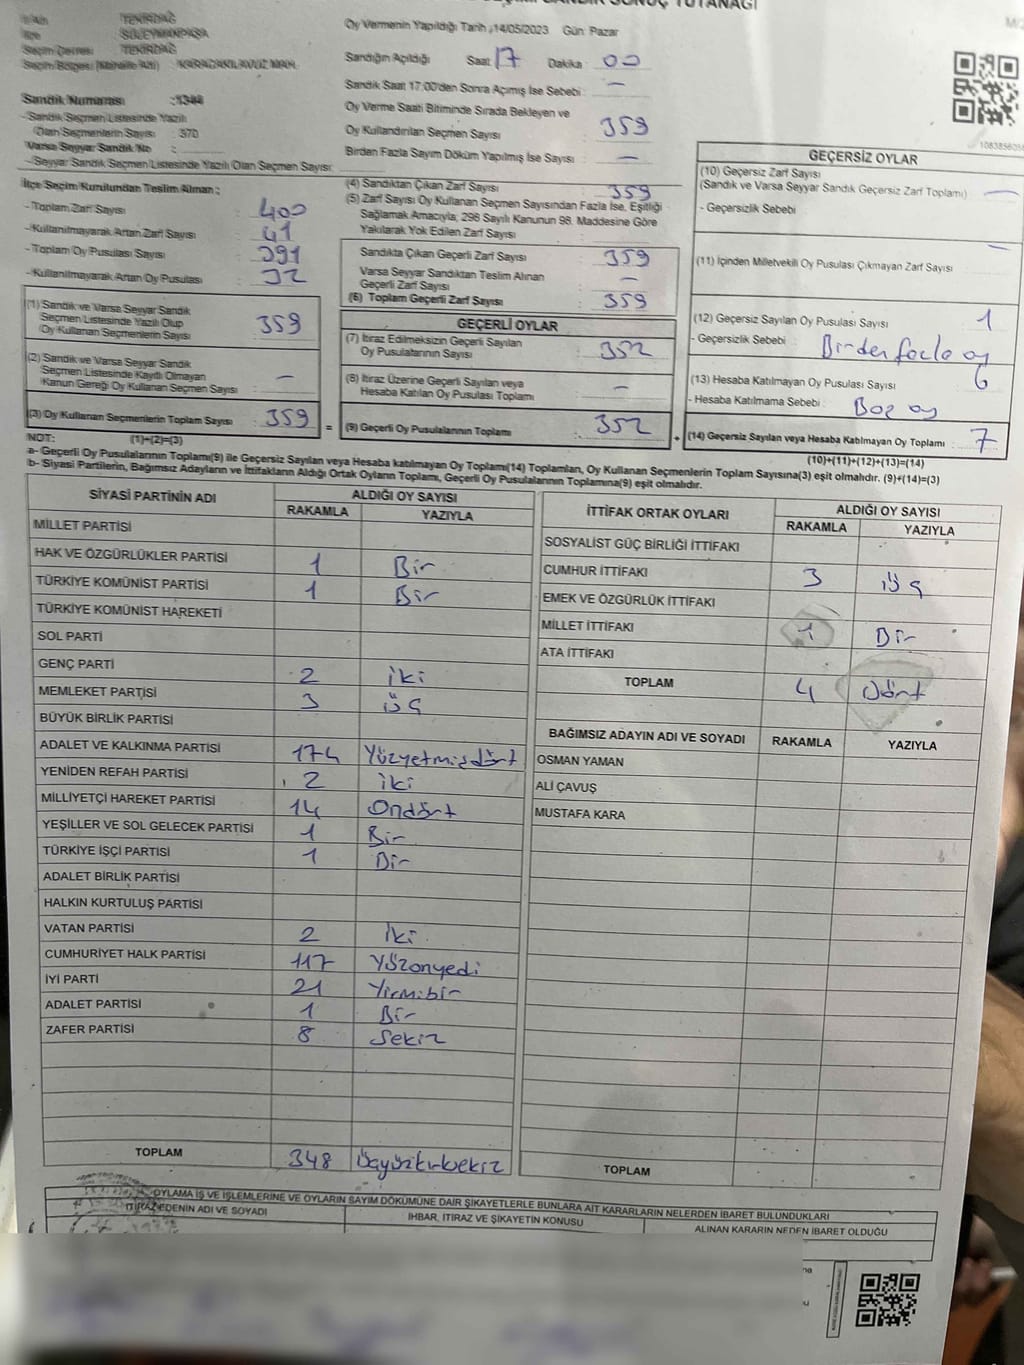 SANDIK SONUÇ TUTANAĞI
TEKİRDAĞ
SÜLEYMANPAŞA
Seçim Çevresi : TEKİRDAĞ
Seçim Bölgesi (Mahalle Adı) : KARACAKILAVUZ MAH.
Sandık Numarası
- Sandık Seçmen Listesinde Yazılı
Olan Seçmenlerin Sayısı : 370
Varsa Seyyar Sandık No :
- Seyyar Sandık Seçmen Listesinde Yazılı Olan Seçmen Sayısı :
Oy Vermenin Yapıldığı Tarih : 14/05/2023 Gün: Pazar
Sandığın Açıldığı Saat 17 Dakika : 00
Sandık Saat 17:00'den Sonra Açımış İse Sebebi : —
Oy Verme Saati Bitiminde Sırada Bekleyen ve
Oy Kullandırılan Seçmen Sayısı : 359
Birden Fazla Sayım Döküm Yapılmış İse Sayısı : —
İlçe Seçim Kurulundan Teslim Alınan :
- Toplam Zarf Sayısı : 400
- Kullanılmayarak Artan Zarf Sayısı : 41
- Toplam Oy Pusulası Sayısı : 391
- Kullanılmayarak Artan Oy Pusulası : 32
(1) Sandık ve Varsa Seyyar Sandık
Seçmen Listesinde Yazılı Olup
Oy Kullanan Seçmenlerin Sayısı : 359
(2) Sandık ve Varsa Seyyar Sandık
Seçmen Listesinde Kayıtlı Olmayan
Kanun Gereği Oy Kullanan Seçmen Sayısı : —
(3) Oy Kullanan Seçmenlerin Toplam Sayısı : 359
(4) Sandıktan Çıkan Zarf Sayısı : 359
(5) Zarf Sayısı Oy Kullanan Seçmen Sayısından Fazla İse, Eşitliği
Sağlamak Amacıyla; 298 Sayılı Kanunun 98. Maddesine Göre
Yakılarak Yok Edilen Zarf Sayısı :
Sandıkta Çıkan Geçerli Zarf Sayısı : 359
Varsa Seyyar Sandıktan Teslim Alınan
Geçerli Zarf Sayısı : —
(6) Toplam Geçerli Zarf Sayısı : 359
GEÇERLİ OYLAR
(7) İtiraz Edilmeksizin Geçerli Sayılan
Oy Pusulalarının Sayısı : 352
(8) İtiraz Üzerine Geçerli Sayılan veya
Hesaba Katılan Oy Pusulası Toplamı : —
= (9) Geçerli Oy Pusulalarının Toplamı : 352
GEÇERSİZ OYLAR
(10) Geçersiz Zarf Sayısı
(Sandık ve Varsa Seyyar Sandık Geçersiz Zarf Toplamı) : —
- Geçersizlik Sebebi
(11) İçinden Milletvekili Oy Pusulası Çıkmayan Zarf Sayısı : —
(12) Geçersiz Sayılan Oy Pusulası Sayısı : 1
- Geçersizlik Sebebi : Birden fazla oy
(13) Hesaba Katılmayan Oy Pusulası Sayısı : 6
- Hesaba Katılmama Sebebi : Boş oy
+ (14) Geçersiz Sayılan veya Hesaba Katılmayan Oy Toplamı : 7
NOT: (1)+(2)=(3)
(10)+(11)+(12)+(13)=(14)
a- Geçerli Oy Pusulalarının Toplamı(9) ile Geçersiz Sayılan veya Hesaba katılmayan Oy Toplamı(14) Toplamları, Oy Kullanan Seçmenlerin Toplam Sayısına(3) eşit olmalıdır. (9)+(14)=(3)
b- Siyasi Partilerin, Bağımsız Adayların ve İttifakların Aldığı Ortak Oyların Toplamı, Geçerli Oy Pusulalarının Toplamına(9) eşit olmalıdır.
SİYASİ PARTİNİN ADI ALDIĞI OY SAYISI
RAKAMLA YAZIYLA
MİLLET PARTİSİ
HAK VE ÖZGÜRLÜKLER PARTİSİ 1 Bir
TÜRKİYE KOMÜNİST PARTİSİ 1 Bir
TÜRKİYE KOMÜNİST HAREKETİ
SOL PARTİ
GENÇ PARTİ 2 iki
MEMLEKET PARTİSİ 3 üç
BÜYÜK BİRLİK PARTİSİ
ADALET VE KALKINMA PARTİSİ 174 Yüzyetmişdört
YENİDEN REFAH PARTİSİ 2 iki
MİLLİYETÇİ HAREKET PARTİSİ 14 Ondört
YEŞİLLER VE SOL GELECEK PARTİSİ 1 Bir
TÜRKİYE İŞÇİ PARTİSİ 1 Bir
ADALET BİRLİK PARTİSİ
HALKIN KURTULUŞ PARTİSİ
VATAN PARTİSİ 2 İki
CUMHURİYET HALK PARTİSİ 117 Yüzonyedi
İYİ PARTİ 21 Yirmibir
ADALET PARTİSİ 1 Bir
ZAFER PARTİSİ 8 Sekiz
TOPLAM 348 Üçyüzkırksekiz
İTTİFAK ORTAK OYLARI ALDIĞI OY SAYISI
RAKAMLA YAZIYLA
SOSYALİST GÜÇ BİRLİĞİ İTTİFAKI
CUMHUR İTTİFAKI 3 üç
EMEK VE ÖZGÜRLÜK İTTİFAKI
MİLLET İTTİFAKI 1 Bir
ATA İTTİFAKI
TOPLAM 4 Dört
BAĞIMSIZ ADAYIN ADI VE SOYADI RAKAMLA YAZIYLA
OSMAN YAMAN
ALİ ÇAVUŞ
MUSTAFA KARA
TOPLAM
OYLAMA İŞ VE İŞLEMLERİNE VE OYLARIN SAYIM DÖKÜMÜNE DAİR ŞİKAYETLERLE BUNLARA AİT KARARLARIN NELERDEN İBARET BULUNDUKLARI
İTİRAZ EDENİN ADI VE SOYADI İHBAR, İTİRAZ VE ŞİKAYETİN KONUSU ALINAN KARARIN NEDEN İBARET OLDUĞU